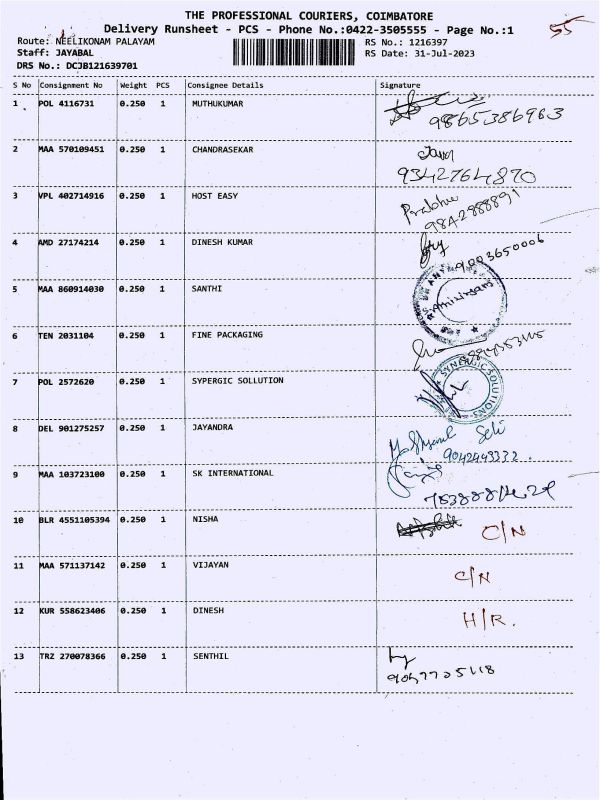 THE PROFESSIONAL COURIERS, COIMBATORE
Delivery Runsheet - PCS - Phone No.:0422-3505555 - Page No.:1
55
Route: NEELIKONAM PALAYAM
RS No.: 1216397
Staff: JAYABAL
RS Date: 31-Jul-2023
DRS No.: DCJB121639701
S No Consignment No Weight PCS Consignee Details Signature
1 POL 4116731 0.250 1 MUTHUKUMAR
9865386963
2 MAA 570109451 0.250 1 CHANDRASEKAR
9342764870
3 VPL 402714916 0.250 1 HOST EASY Prabhu
9842888891
4 AMD 27174214 0.250 1 DINESH KUMAR
9003650006
5 MAA 860914030 0.250 1 SANTHI
6 TEN 2031104 0.250 1 FINE PACKAGING
7 POL 2572620 0.250 1 SYPERGIC SOLLUTION SYNERGIC SOLUTIONS
8 DEL 901275257 0.250 1 JAYANDRA
9042443332.
9 MAA 103723100 0.250 1 SK INTERNATIONAL
10 BLR 4551105394 0.250 1 NISHA C/N
11 MAA 571137142 0.250 1 VIJAYAN C/N
12 KUR 558623406 0.250 1 DINESH H/R.
13 TRZ 270078366 0.250 1 SENTHIL
9047705118